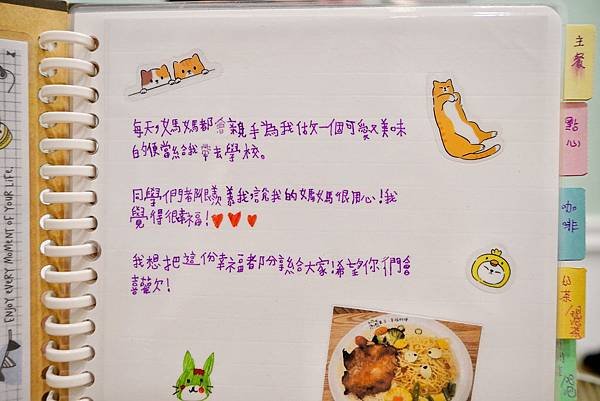 每天,媽媽都會親手為我做一個可愛又美味
的便當給我帶去學校。
同學們都很羨慕我說我的媽媽很用心!我
覺得很幸福!
我想把這份幸福都分享給大家!希望你們會
喜歡!
主餐
點心
咖啡
ENJOY EVERY MOMENT OF YOUR LIFE.